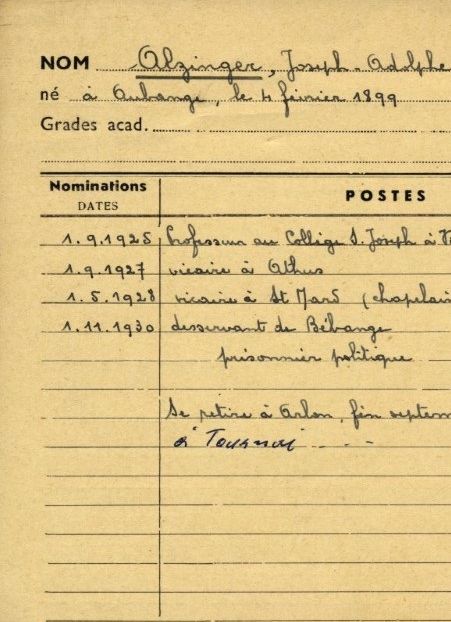 NOM Alzinger, Joseph-Adolphe
né à Aubange, le 4 février 1899
Grades acad.
Nominations DATES POSTES
1.9.1925 Professeur au Collège S. Joseph à
1.9.1927 vicaire à Athus
1.5.1928 vicaire à St Mard (chapelain
1.11.1930 desservant de Bébange
prisonnier politique
Se retire à Arlon, fin septem
à Tournai - - -